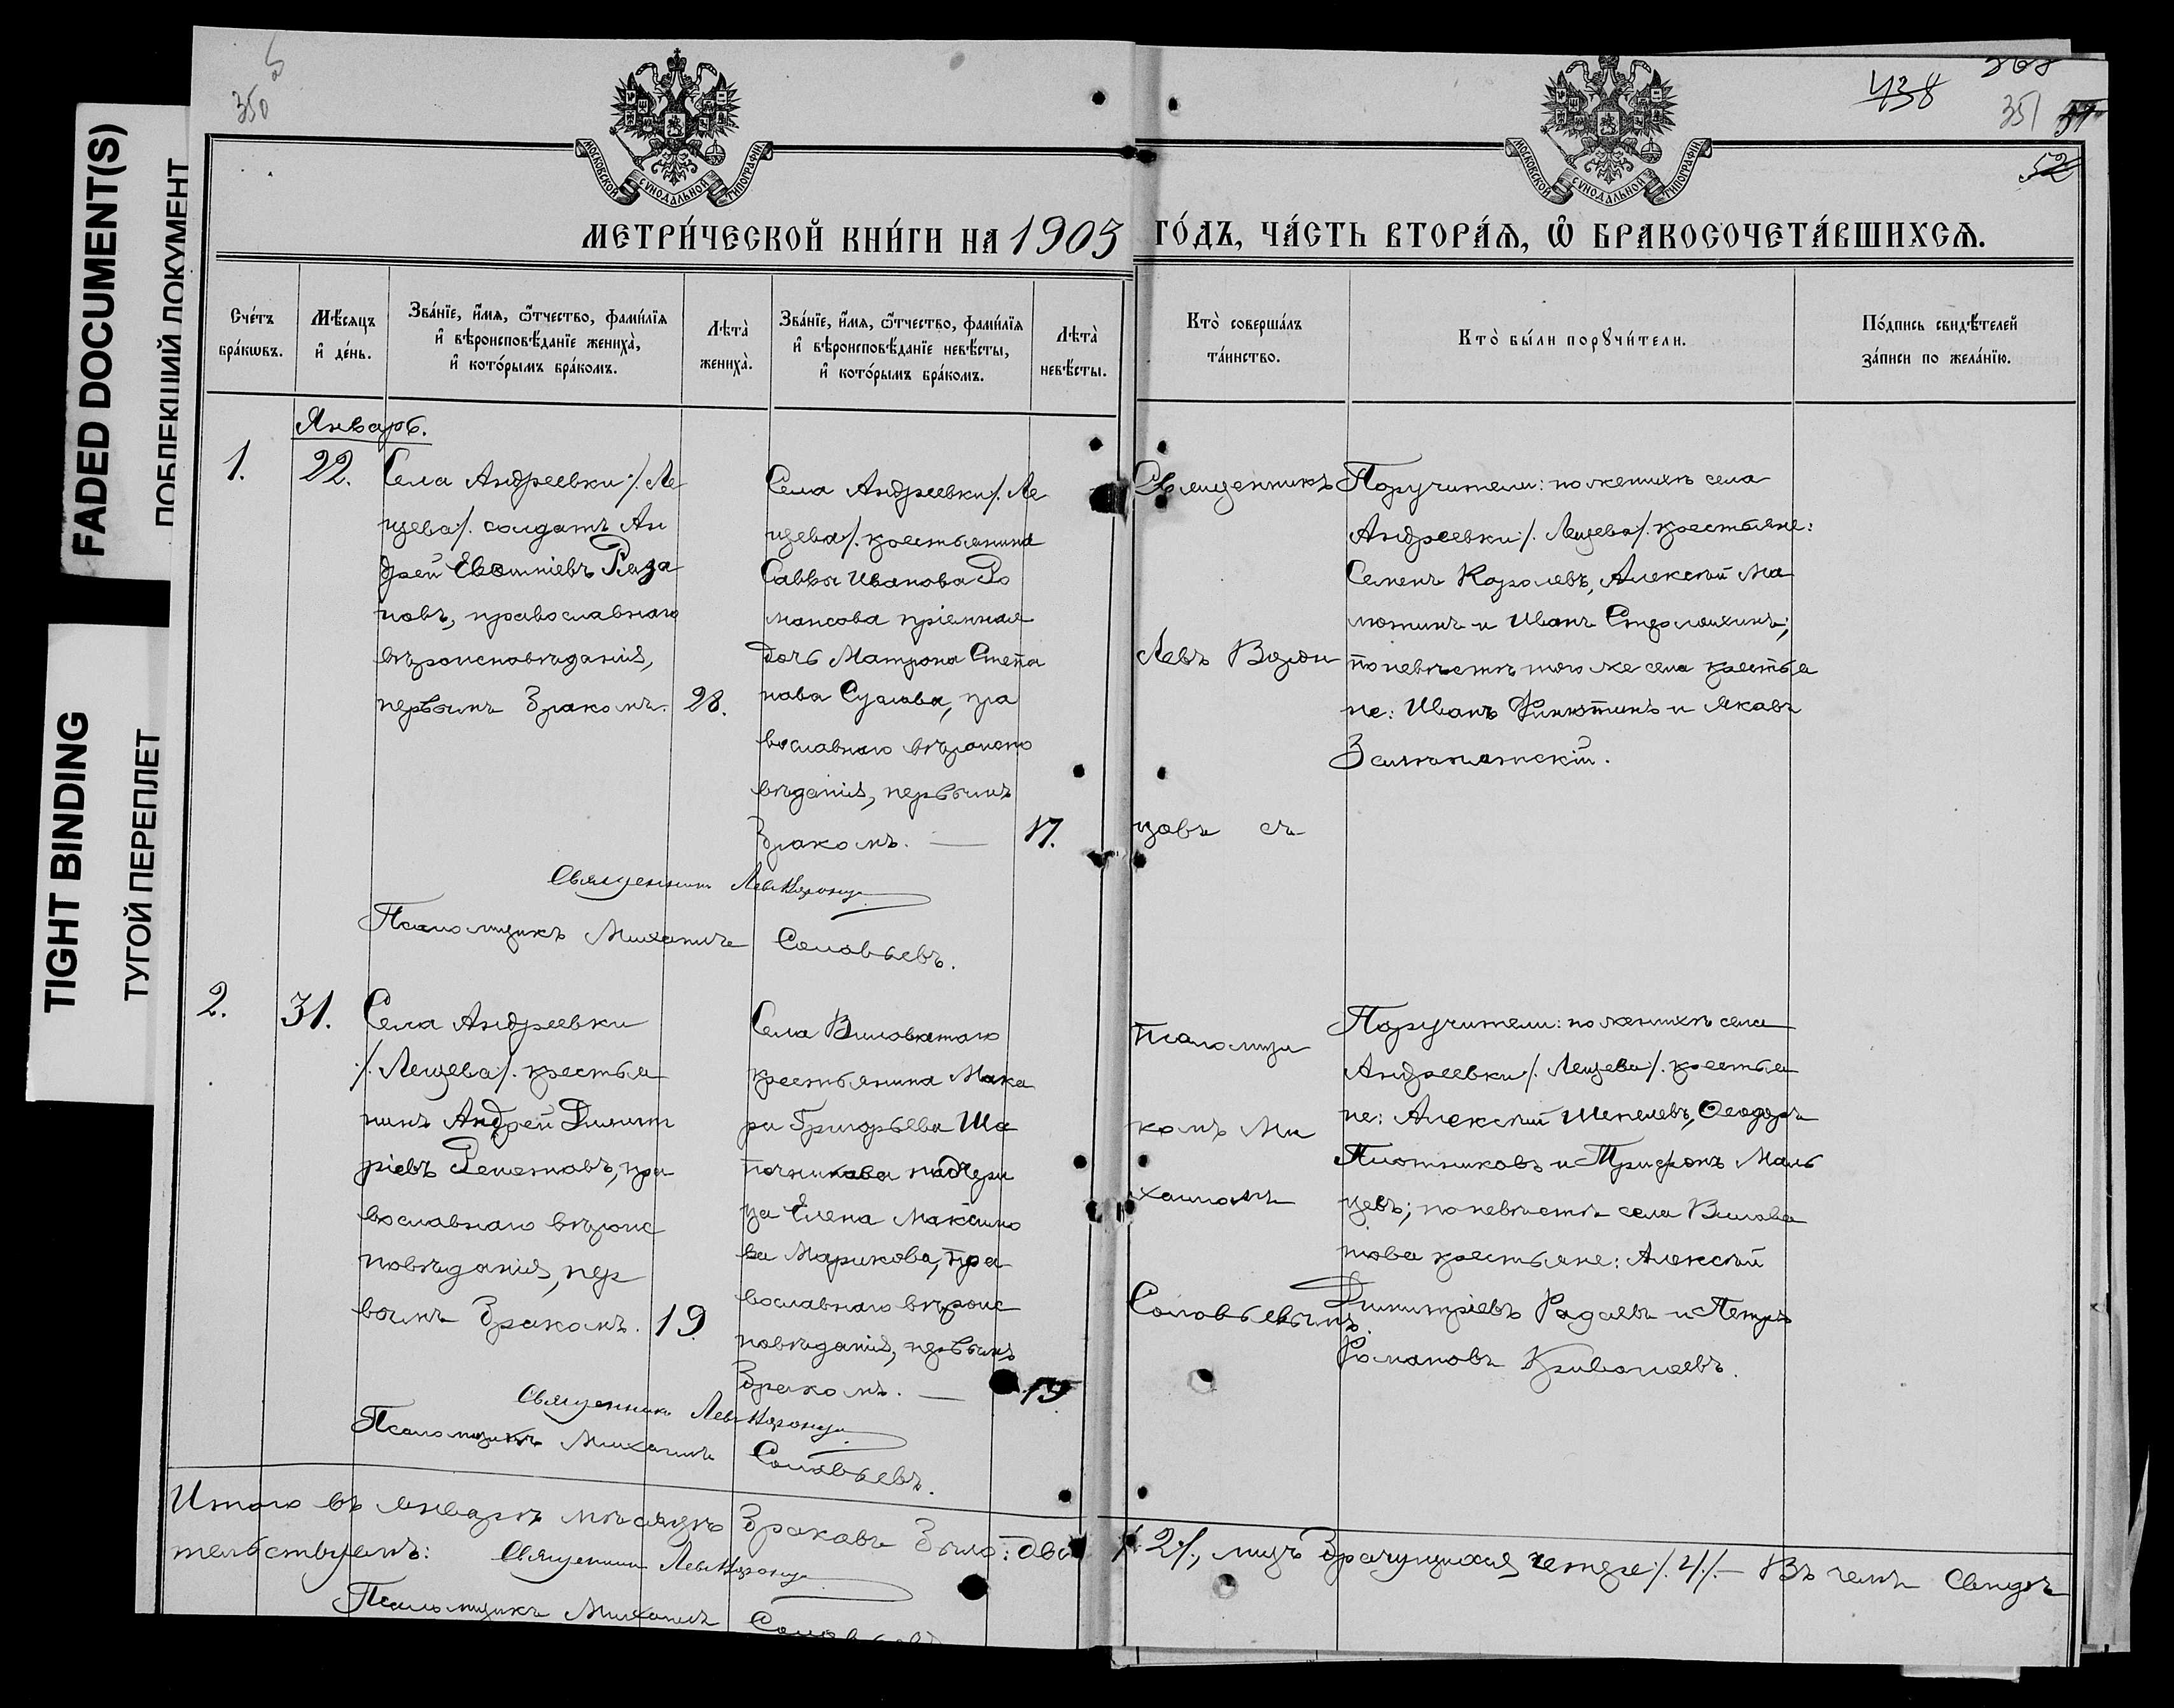 FADED DOCUMENT(S)
ПОБЛЕКШИЙ ДОКУМЕНТ
TIGHT BINDING
ТУГОЙ ПЕРЕПЛЕТ
350
438
351
52
МОСКОВСКОЙ СѴНОДАЛЬНОЙ ТИПОГРАФІИ
МОСКОВСКОЙ СѴНОДАЛЬНОЙ ТИПОГРАФІИ
МЕТРИ́ЧЕСКОЙ КНИ́ГИ НА 1905 ГО́ДЪ, ЧА́СТЬ ВТОРА́Я, Ѽ БРАКОСОЧЕТА́ВШИХСЯ.
Сче́тъ
бра́кѡвъ.
Мѣ́сяцъ
и҆ де́нь.
Зва́нїе, и҆́мя, ѻ҆́тчество, фами́лїя
и҆ вѣроисповѣ́данїе жениха̀,
и҆ кото́рымъ бра́комъ.
Лѣта̀
жениха̀.
Зва́нїе, и҆́мя, ѻ҆́тчество, фами́лїя
и҆ вѣроисповѣ́данїе невѣ́сты,
и҆ кото́рымъ бра́комъ.
Лѣта̀
невѣ́сты.
Кто̀ соверша́лъ
та́инство.
Кто̀ бы́ли порꙋчи́тели.
По́дпись свидѣ́телей
за́писи по жела́нїю.
Январь.
1.
22.
Села Андреевки /. Ле
щева/. солдатъ Ан
дрей Евотіевъ Раза
новъ, православнаго
вѣроисповѣданія,
первымъ бракомъ.
28.
Села Андреевки/. Ле
щева/. крестьянина
Саввы Иванова Ро
мансова пріемная
дочь Матрона Степа
нова Суслова, пра
вославнаго вѣроиспо
вѣданія, первымъ
бракомъ. —
17.
Священникъ
Левъ Ворон
цовъ съ
Поручители: по женихѣ села
Андреевки /. Лещева/. крестьяне:
Семенъ Королевъ, Алексѣй Ма
мотинъ и Иванъ
по невѣстѣ того же села крестья
не: Иванъ и Яковъ
Священникъ Левъ Воронц
Псаломщикъ Михаилъ Соловьевъ.
2.
31.
Села Андреевки
/. Лещева/. крестья
нинъ Андрей Димит
ріевъ Репетовъ, пра
вославнаго вѣроис
повѣданія, пер
вымъ бракомъ.
19.
Села Виловатаго
крестьянина Мака
ра Григорьева Ша
почникова падчери
ца Елена Максимо
ва Марикова, пра
вославнаго вѣроис
повѣданія, первымъ
бракомъ. —
19
Псаломщи
комъ Ми
хаиломъ
Соловьевымъ.
Поручители: по женихѣ села
Андреевки /. Лещева/. крестья
не: Алексѣй Шепелевъ, Ѳеодоръ
Плотниковъ и Трифонъ Маль
цевъ; по невѣстѣ села Вилова
това крестьяне: Алексѣй
Димитріевъ Радаевъ и Петръ
Романовъ Криволаевъ.
Священникъ Левъ Воронц
Псаломщикъ Михаилъ Соловьевъ.
Итого въ январѣ мѣсяцѣ браковъ было: два /. 2/., лицъ брачущихся четыре /. 4/. — Въ чемъ свидѣ
тельствуемъ: Священникъ Левъ Воронц
Псаломщикъ Михаилъ Соловьевъ